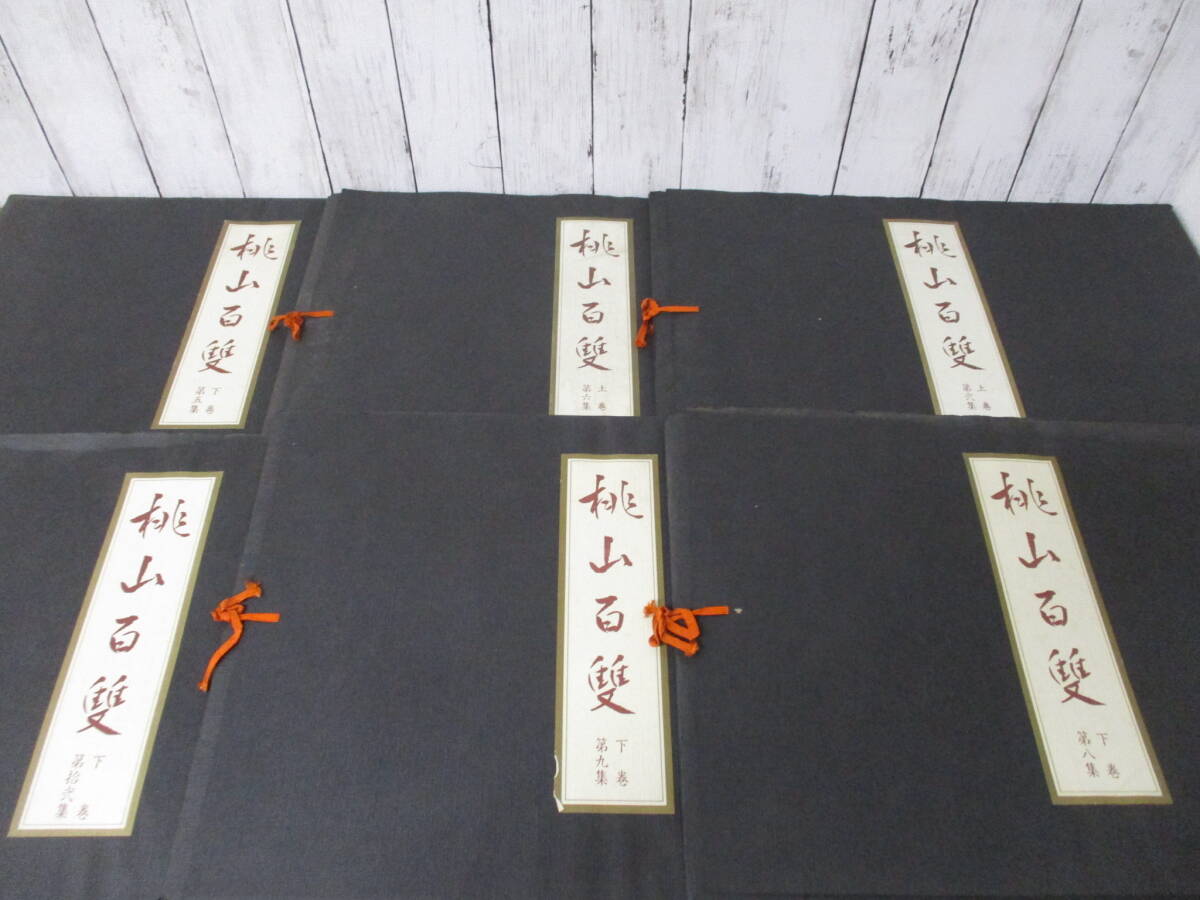 桃山百雙
下巻
第五集
桃山百雙
上巻
第六集
桃山百雙
上巻
桃山百雙
下巻
桃山百雙
下巻
第九集
桃山百雙
下巻
第八集